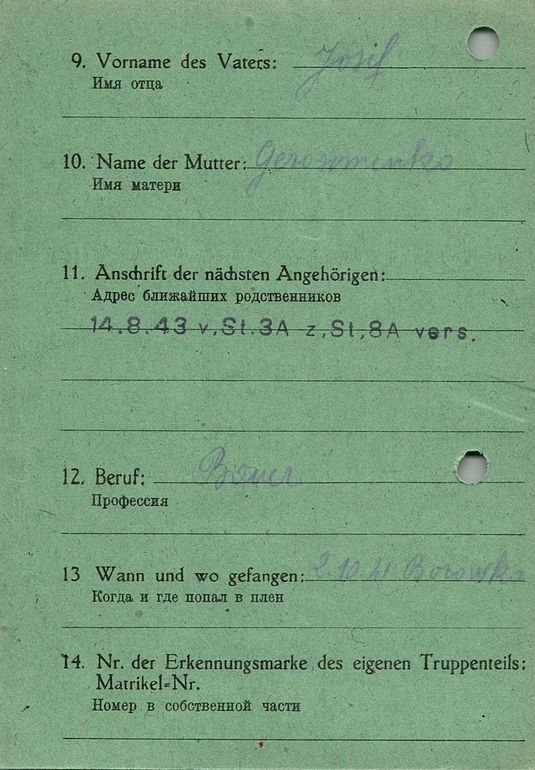 9. Vorname des Vaters: Josif
Имя отца
10. Name der Mutter:
Имя матери
11. Anschrift der nächsten Angehörigen:
Адрес ближайших родственников
14.8.43 v,St.3A z,St,8A vers.
12. Beruf: Bauer
Профессия
13 Wann und wo gefangen: 2.10.41 Borowka
Когда и где попал в плен
14. Nr. der Erkennungsmarke des eigenen Truppenteils:
Matrikel-Nr.
Номер в собственной части